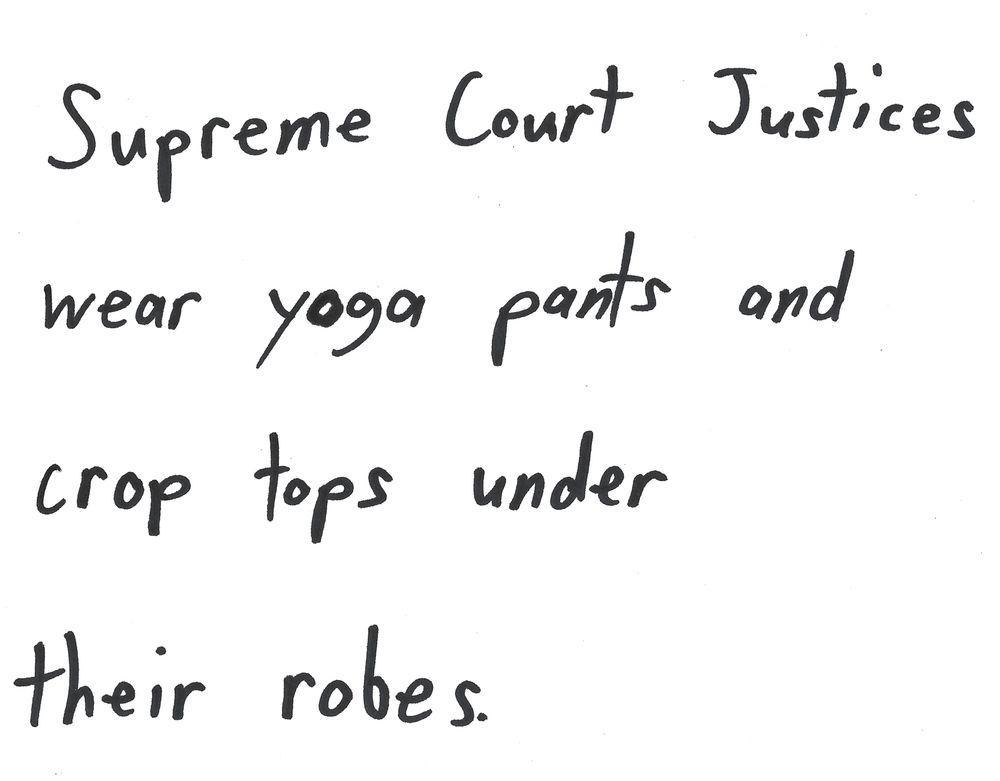 Supreme Court Justices
wear yoga pants and
crop tops under
their robes.